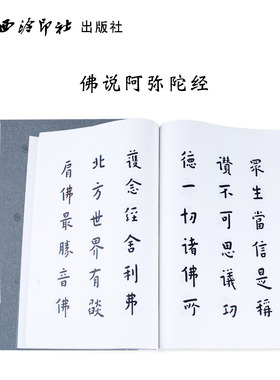 西泠印社 出版社
佛说阿弥陀经
眾生當信是稱
讚不可思議功
德一切諸佛所
護念經舍利弗
北方世界有燄
肩佛最勝音佛